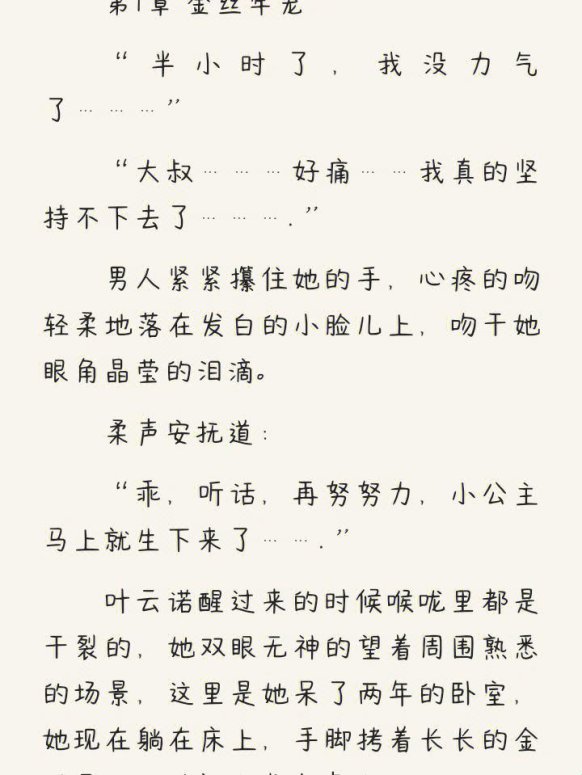 第1章 金丝牢笼
“半小时了，我没力气
了………”
“大叔………好痛……我真的坚
持不下去了……….”
男人紧紧攥住她的手，心疼的吻
轻柔地落在发白的小脸儿上，吻干她
眼角晶莹的泪滴。
柔声安抚道：
“乖，听话，再努努力，小公主
马上就生下来了…….”
叶云诺醒过来的时候喉咙里都是
干裂的，她双眼无神的望着周围熟悉
的场景，这里是她呆了两年的卧室，
她现在躺在床上，手脚拷着长长的金